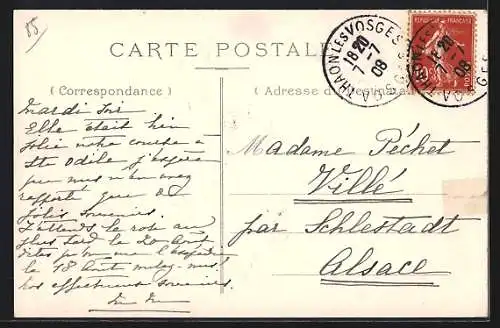 85
CARTE POSTALE
(Correspondance)
(Adresse
THAON LES VOSGES
18 20
7 - 7
08
REPUBLIQUE FRANÇAISE
Mardi soir
Elle était bien
jolie notre course à
Ste Odile j'espère
que vous n'en avez
rapporté que de
jolis souvenirs.
J'attends la robe au
plus tard le 20 Août
le 18 Août
affectueux souvenirs.
Madame Péchet
Villé
par Schlestadt
Alsace